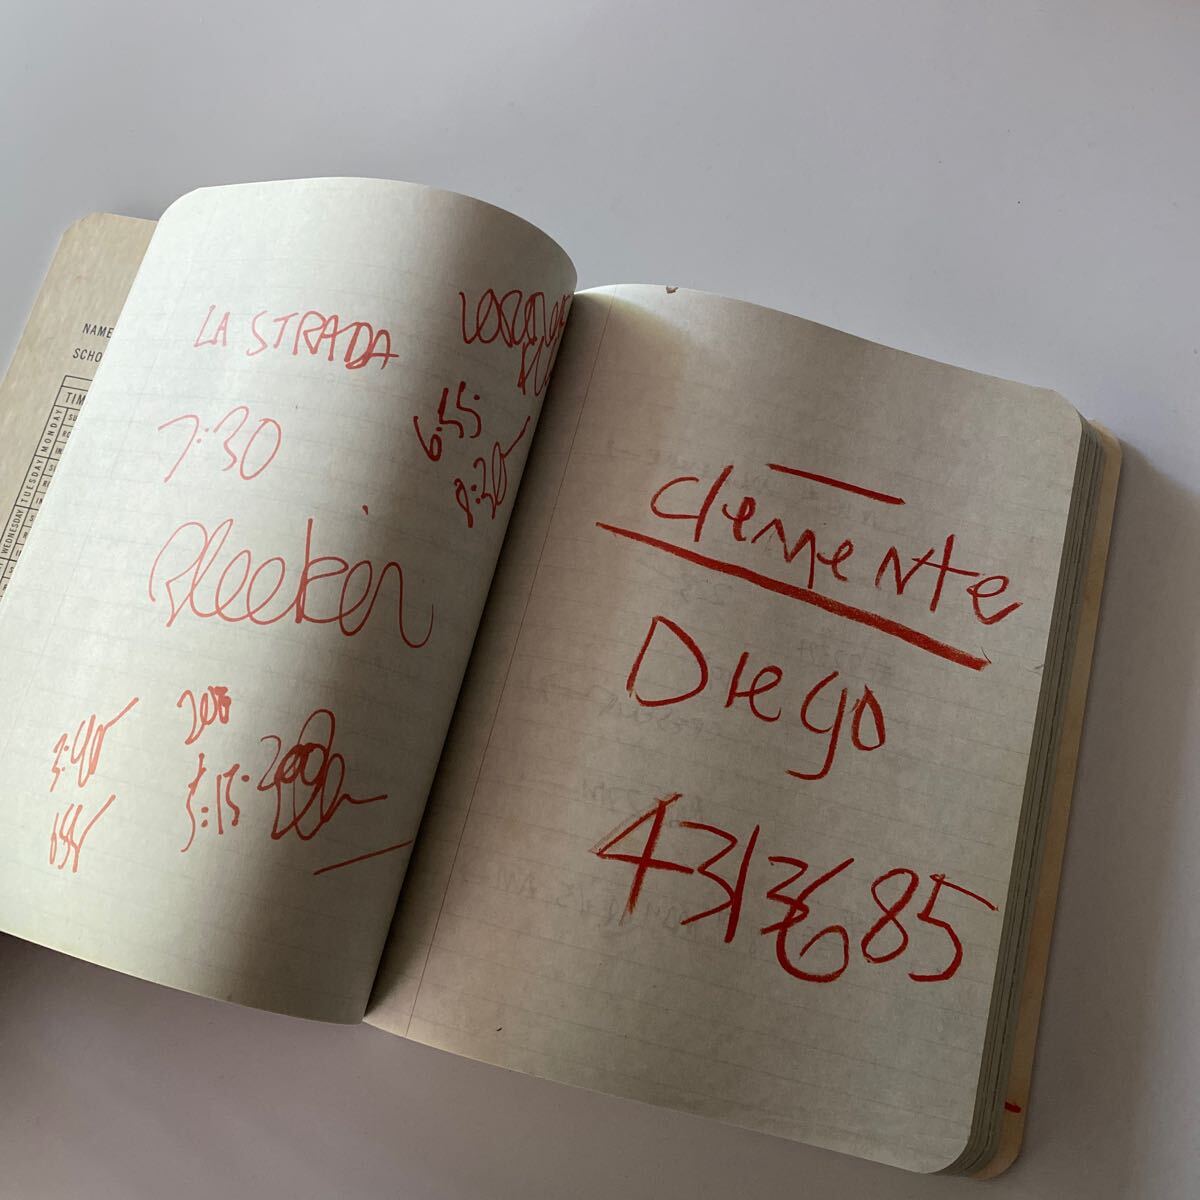 NAME
SCHO
TIM
MONDAY
TUESDAY
WEDNESDAY
LA STRADA
7:30
6:55
8:30
Bleeker
3:40
200
5:15
clemente
Diego
4313685